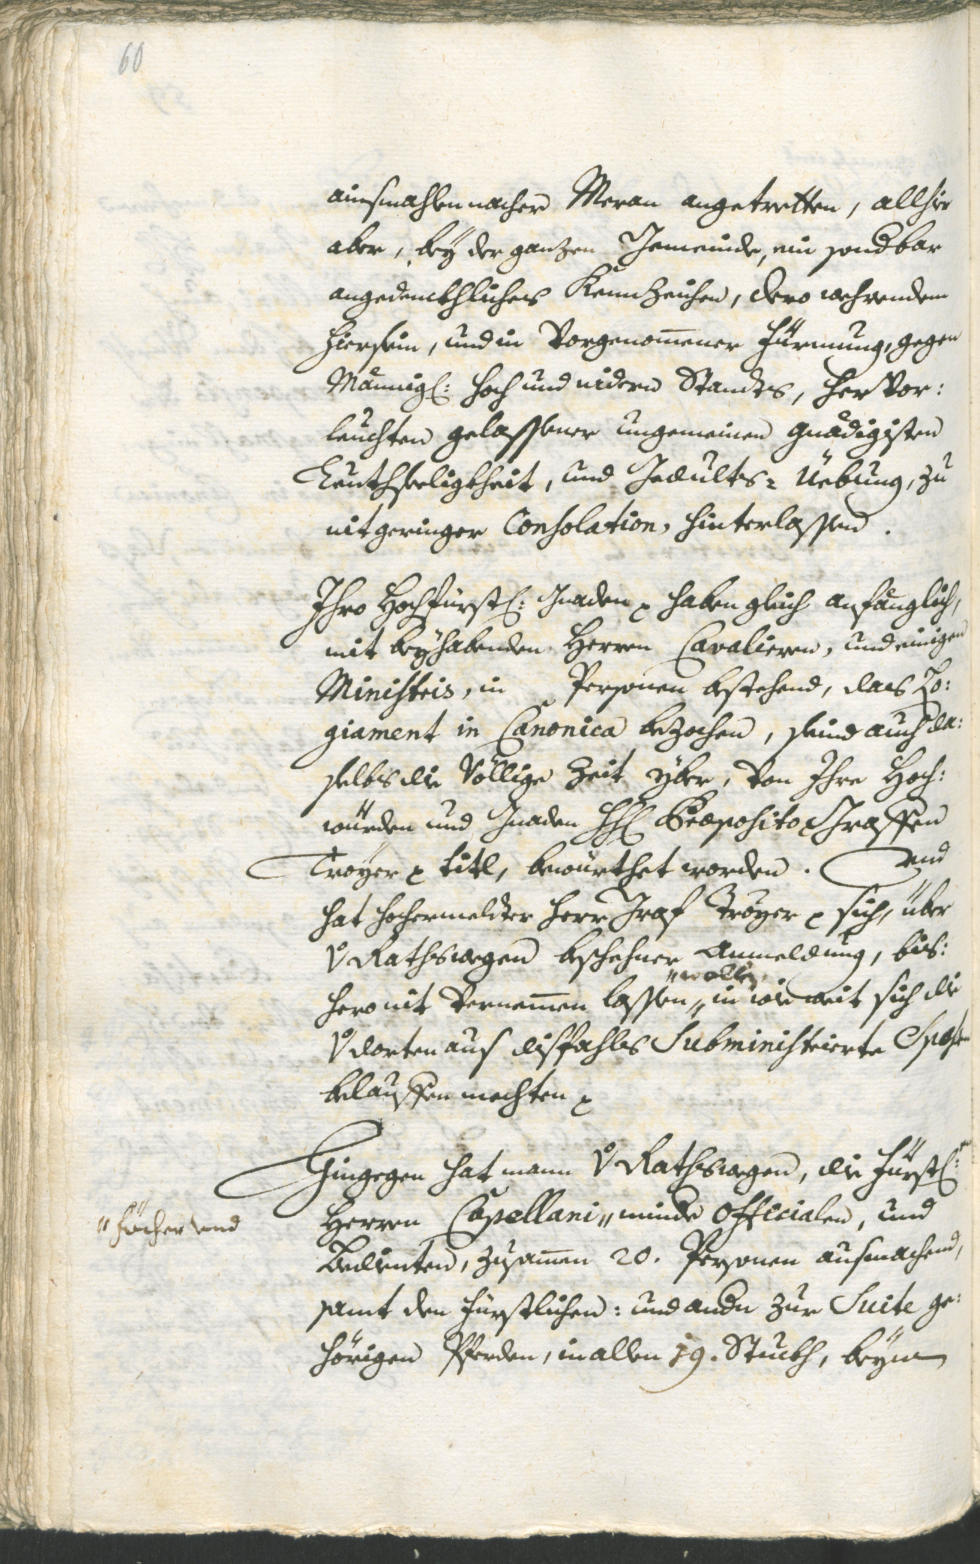 60
ainsmahlen nacher Meran angetretten, allhie
aber, bey der ganzen Gemeinde, ein sondbar
angedenckhliches Kennzeichen, dero wehrendem
Hiersein, und in vorgenommener Fürmung, gegen
Männigl: hoch und nidern Standts, hervor:
leuchten gelassener ungemeinen gnädigisten
Leuthseeligkheit, und Gedults= Üebung, zu
nit geringer Consolation, hinterlassen.
Ihro Hochfürstl: Gnaden haben gleich anfänglich,
mit beyhabenden Herren Cavalieren, und einigen
Ministris, in Personen bestehend, das Lo:
giament in Canonica bezochen, seind auch da:
selbs die völlige Zeit yber, von Ihre Hoch:
würden und Gnaden Praeposito Graffen
Troyer titl, bewürthet worden. Und
hat hochermelter Herr Graf Troyer sich, über
v Rathswegen beschehner Anmeldung, bis:
hero nit vernemmen lassen
"wollen,
in wie weit sich die
v dorten aus disfahls Subministrierte
belauffen mechten
Hingegen hat mann v Rathswegen, die Fürstl:
Herren Capellani, " mindere Officialen, und
" höcher und
Bedienten, zusammen 20. Personen ausmachend,
samt den Fürstlichen: und andern zur Suite ge:
hörigen Pferden, in allen 19. Stuckh, beym